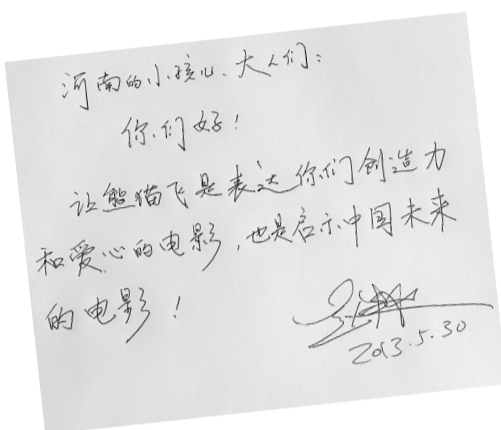 河南的小孩儿、大人们：
你们好！
让熊猫飞是表达你们创造力
和爱心的电影，也是启示中国未来
的电影！
2013.5.30